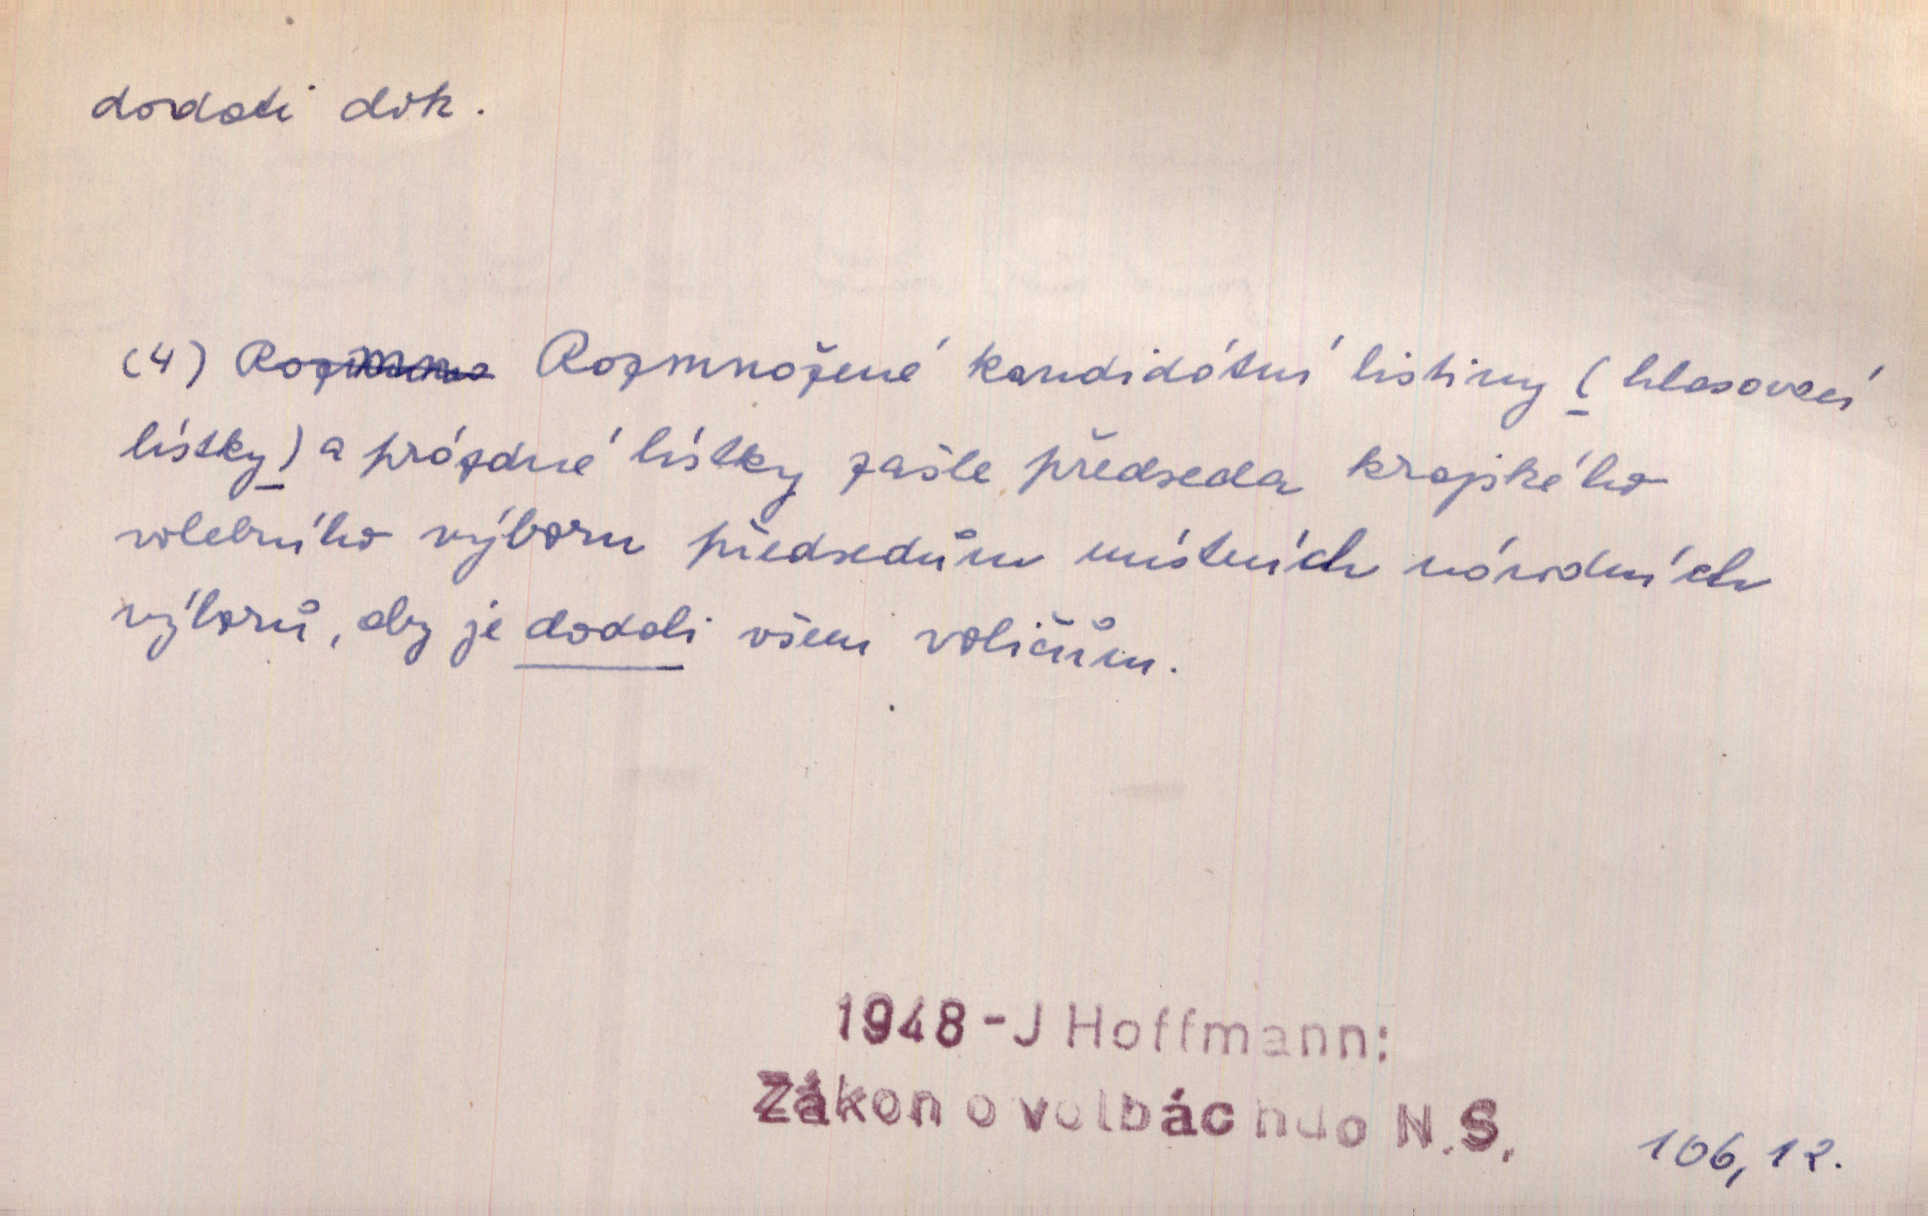 dodati dok.
(4) Rozmnožené kandidátní listiny (hlasovací
lístky) a prázdné lístky zašle předseda krajského
volebního výboru předsedům místních národních
výborů, aby je dodali všem voličům.
1948 - J Hoffmann:
Zákon o volbách do N.S.
106,12.